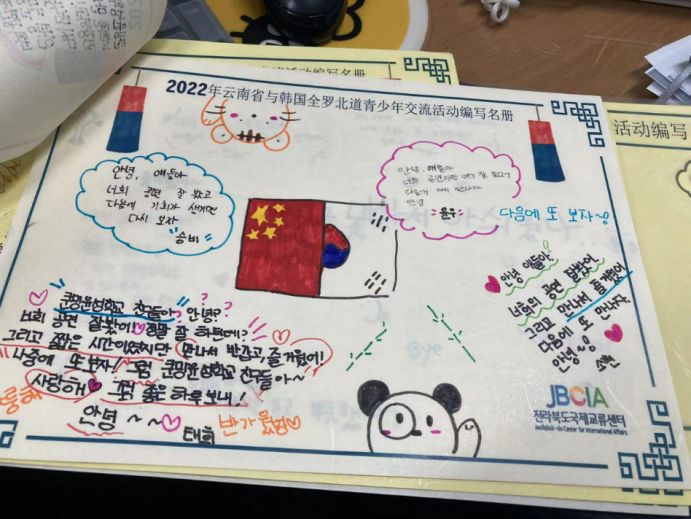 2022年云南省与韩国全罗北道青少年交流活动编写名册
안녕, 얘들아
너희 공연 잘 봤고
다음에 기회가 생기면
다시 보자
승비
안녕, 얘들아
너희 공연이랑 얘기 잘 들었고
다음에 또 만나자
안녕
윤우
다음에 또 보자~!
안녕 얘들아!
너희의 공연 잘봤어.
그리고 만나서 즐거웠어
다음에 또 만나자.
안녕~!
쿤밍한성학교 친구들아, 안녕?
너희 공연 잘봤어! 정말 잘 하던데?
그리고 짧은 시간이었지만 만나서 반갑고, 즐거웠어!
나중에 또 보자! 그럼 쿤밍한성학교 친구들아~
사랑해 좋은 하루 보내!
안녕~~
태희
반가웠어
JBCIA
전라북도국제교류센터
Jeollabuk-do Center for International Affairs
活动编写